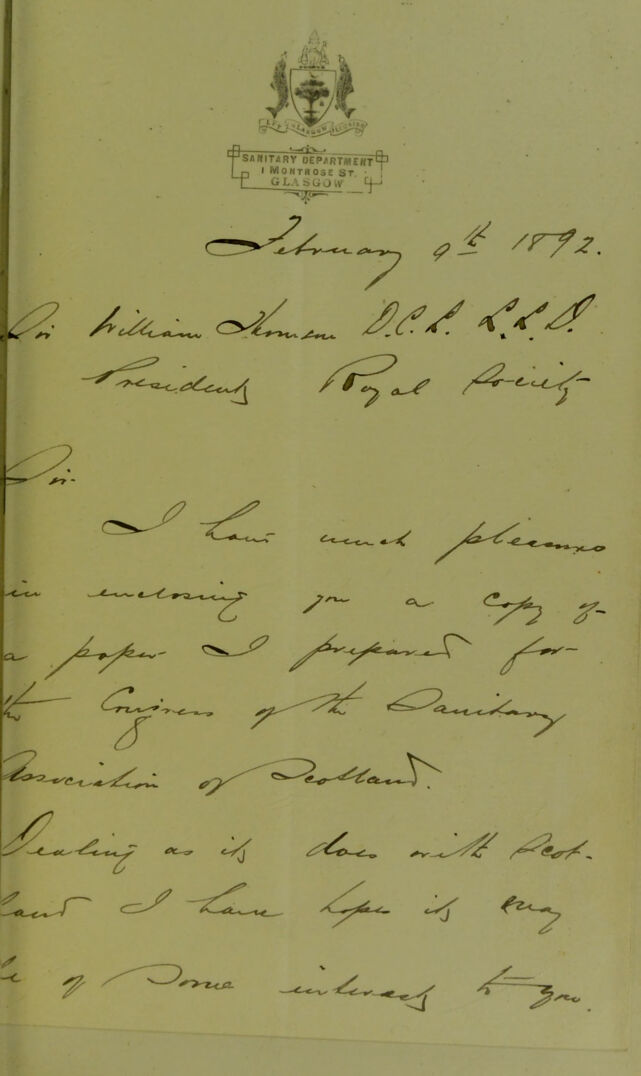 LET GLASGOW FLOURISH
SANITARY DEPARTMENT
1 MONTROSE ST.
GLASGOW
February 9th 1892.
Sir William Thomson D.C.L. L.L.D.
President Royal Society
Sir.
I have much pleasure
in enclosing you a copy of
a paper I prepared for
the Congress of the Sanitary
Association of Scotland.
Dealing as it does with Scot-
land I have hopes it may
be of some interest to you.